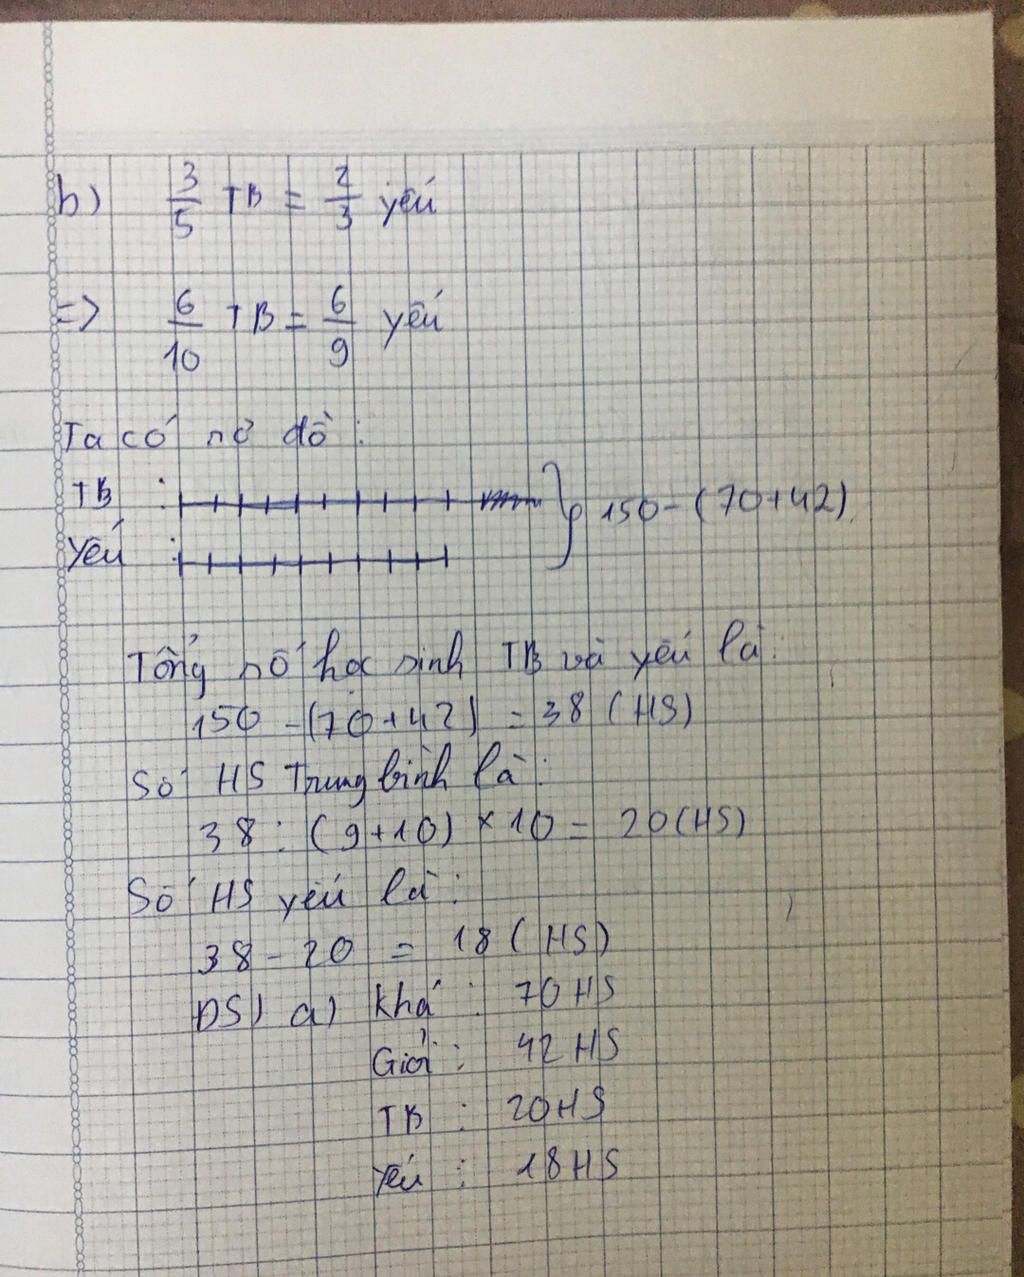 b) 3/5 TB = 2/3 yếu
=> 6/10 TB = 6/9 yếu
Ta có sơ đồ :
TB :
Yếu :
150 - (70+42)
Tổng số học sinh TB và yếu là :
150 - (70+42) = 38 (HS)
Số HS Trung bình là :
38 : (9+10) × 10 = 20 (HS)
Số HS yếu là :
38 - 20 = 18 (HS)
ĐS) a) Khá : 70 HS
Giỏi : 42 HS
TB : 20 HS
Yếu : 18 HS